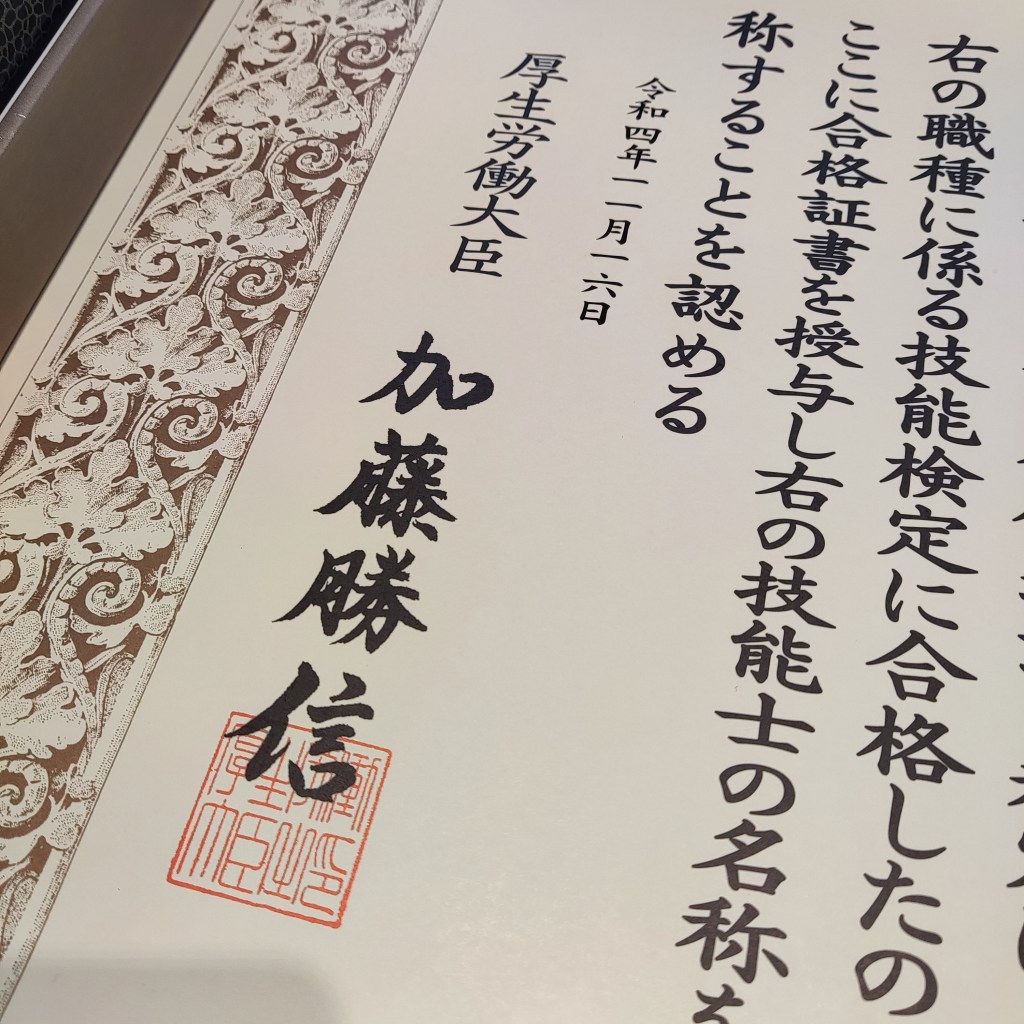 右の職種に係る技能検定に合格したの
ここに合格証書を授与し右の技能士の名称を
称することを認める
令和四年一一月一六日
厚生労働大臣
加藤勝信